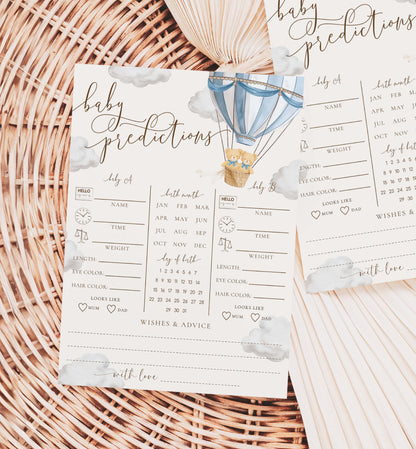 baby
predictions
baby A
HELLO
NAME
TIME
WEIGHT
LENGTH:
EYE COLOR:
HAIR COLOR:
LOOKS LIKE
MUM DAD
birth month
JAN FEB MAR
APR MAY JUN
JUL AUG SEP
OCT NOV DEC
day of birth
1 2 3 4 5 6 7
8 9 10 11 12 13 14
15 16 17 18 19 20 21
22 23 24 25 26 27 28
29 30 31
baby B
HELLO
NAME
TIME
WEIGHT
LENGTH:
EYE COLOR:
HAIR COLOR:
LOOKS LIKE
MUM DAD
WISHES & ADVICE
with love
baby
predictions
baby A
NAME
TIME
WEIGHT
LENGTH:
EYE COLOR:
HAIR COLOR:
LOOKS LIKE
MUM DAD
birth month
JAN FEB
APR MAY
JUL AUG
OCT NOV
WISHES &
with love